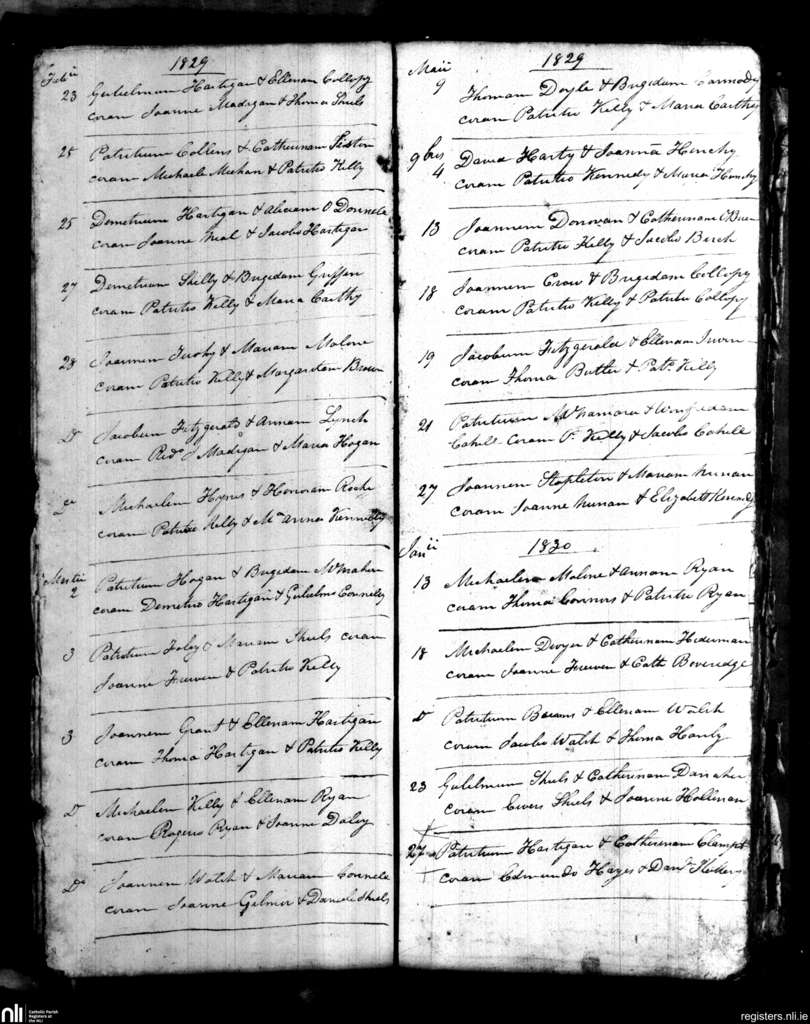 1829
Febii
23 Gulielmum Hartigan & Ellenam Collopy
coram Joanne Madigan & Thoma Shiels
25 Patritium Collens & Catherinam
coram Michaele Meehan & Patritio Kelly
25 Demetrium Hartigan & Aliciam O Donnele
coram Joanne Neal & Jacobo Hartigan
27 Demetrium Skelly & Brigidam Griffin
coram Patritio Kelly & Maria Carthy
28 Joannem & Mariam Malone
coram Patritio Kelly & Margaritam Brown
Do Jacobum Fitzgerald & Annam Lynch
coram Rido Madigan & Maria Hogan
Do Michaelem & Honoram Roche
coram Patritio Kelly & Ma Anna Kennedy
Martii
2 Patritium Hogan & Brigidam McMahon
coram Demetrio Hartigan & Gulielmo Connelly
3 Patritium Foley & Mariam Shiels coram
Joanne Frewen & Patritio Kelly
3 Joannem Grant & Ellenam Hartigan
coram Thoma Hartigan & Patritio Kelly
Do Michaelem Kelly & Ellenam Ryan
coram Rogerio Ryan & Joanne Daley
Do Joannem Walsh & Mariam Connele
coram Joanne Gilmor & Daniele Shiels
1829
Maii
9 Thomam Doyle & Brigidam Carmody
coram Patritio Kelly & Maria Carthy
9bris
4 David Harty & Joanna Henchy
coram Patritio Kennedy & Maria Henchy
13 Joannem Donovan & Catherinam OBrien
coram Patritio Kelly & Jacobo Birch
18 Joannem Crow & Brigidam Collopy
coram Patritio Kelly & Patritio Collopy
19 Jacobum Fitzgerald & Ellenam Irwin
coram Thoma Butler & Patk Kelly
21 Patritium McNamara & Winifridam
Cahill coram P. Kelly & Jacobo Cahill
27 Joannem Stapleton & Mariam Nunan
coram Joanne Nunan & Elizabeth Kennedy
1830
Janii
13 Michaelem Malone & Annam Ryan
coram Thoma Connors & Patritio Ryan
18 Michaelem Dwyer & Catherinam Hederman
coram Joanne Frewen & Cath Beveridge
Do Patritium & Ellenam Walsh
coram Jacobo Walsh & Thoma Hanly
23 Gulielmum Shiels & Catherinam Danaher
coram Shiels & Joanne Holleran
27 Patritium Hartigan & Catherinam
coram Edmundo Hayes & Danl
nli
Catholic Parish
Registers at
the NLI
registers.nli.ie